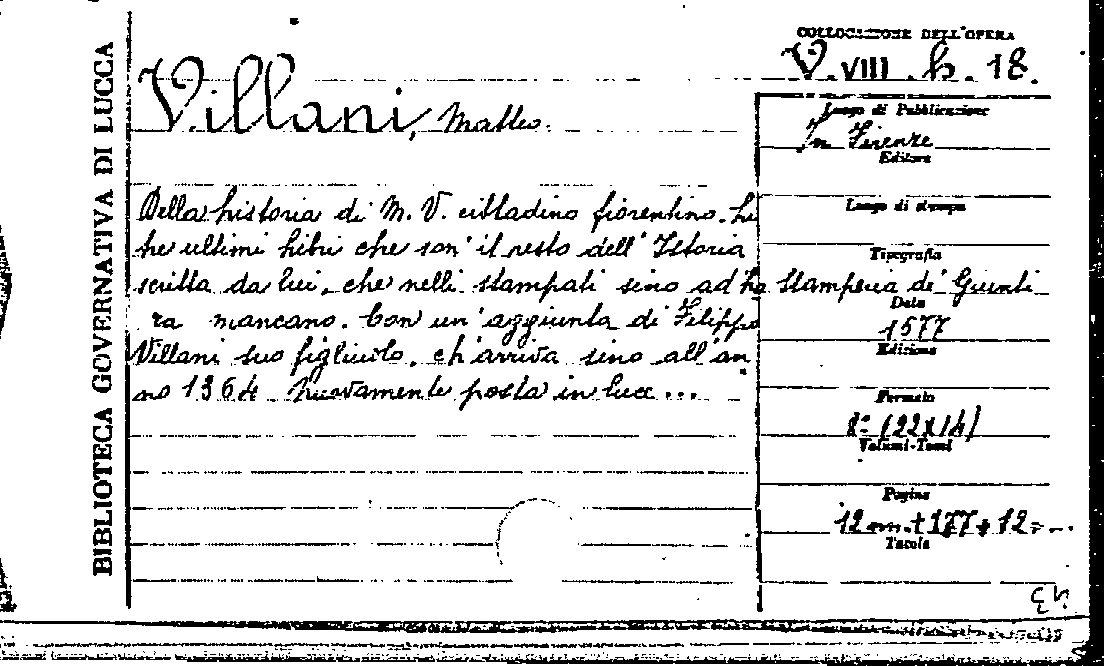 BIBLIOTECA GOVERNATIVA DI LUCCA
COLLOCAZIONE DELL'OPERA
V. VIII. h. 18.
Villani, Matteo.
Luogo di Pubblicazione
In Firenze
Editore
Luogo di stampa
Tipografia
Stamperia di Giunti
Data
1577
Edizione
Formato
8° (22x14)
Volumi-Tomi
Pagine
12 nn. + 177 + 12 = ...
Tavole
Della historia di M. V. cittadino fiorentino. Li
tre ultimi libri che son' il resto dell'Istoria
scritta da lui, che nelli stampati sino ad ho
ra mancano. Con un'aggiunta di Filippo
Villani suo figliuolo, ch'arriva sino all'an
no 1364. Nuovamente posta in luce ...